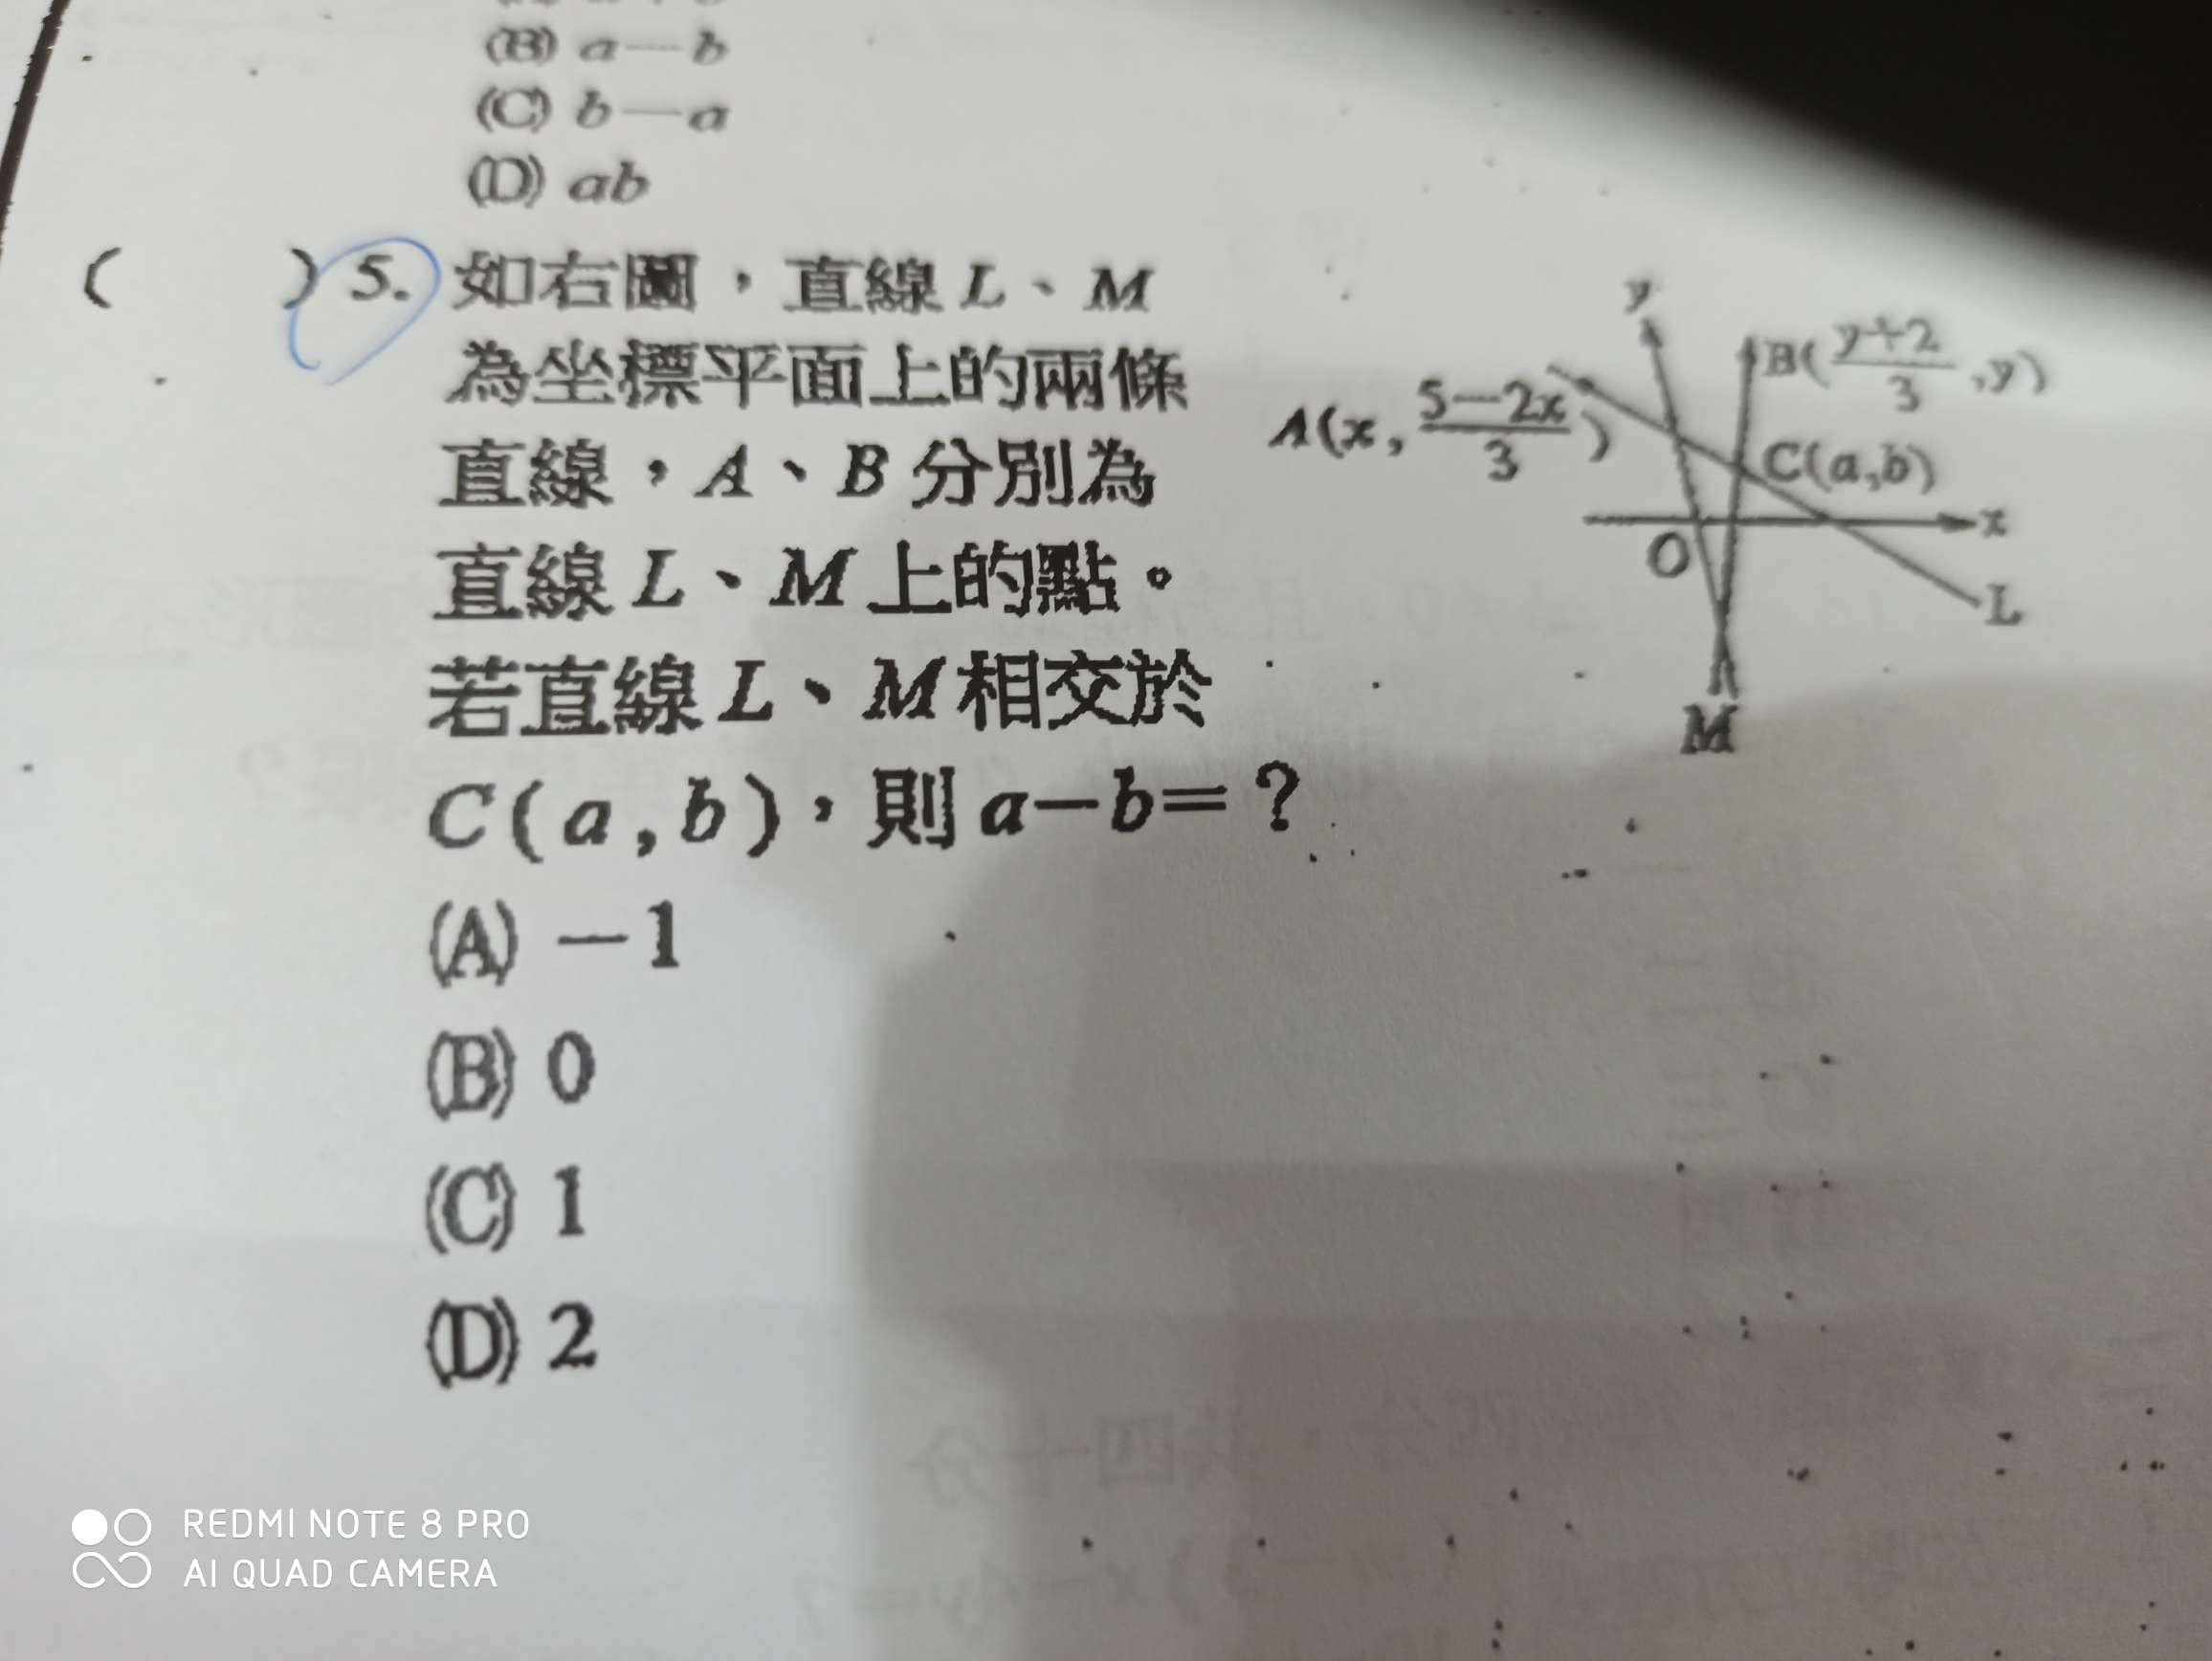 (B) a－b
(C) b－a
(D) ab
(　　) 5. 如右圖，直線 L、M
為坐標平面上的兩條
直線，A、B 分別為
直線 L、M 上的點。
若直線 L、M 相交於
C(a,b)，則 a－b＝？
(A) －1
(B) 0
(C) 1
(D) 2
y
B(\frac{y+2}{3},y)
A(x,\frac{5-2x}{3})
C(a,b)
x
O
L
M
REDMI NOTE 8 PRO
AI QUAD CAMERA